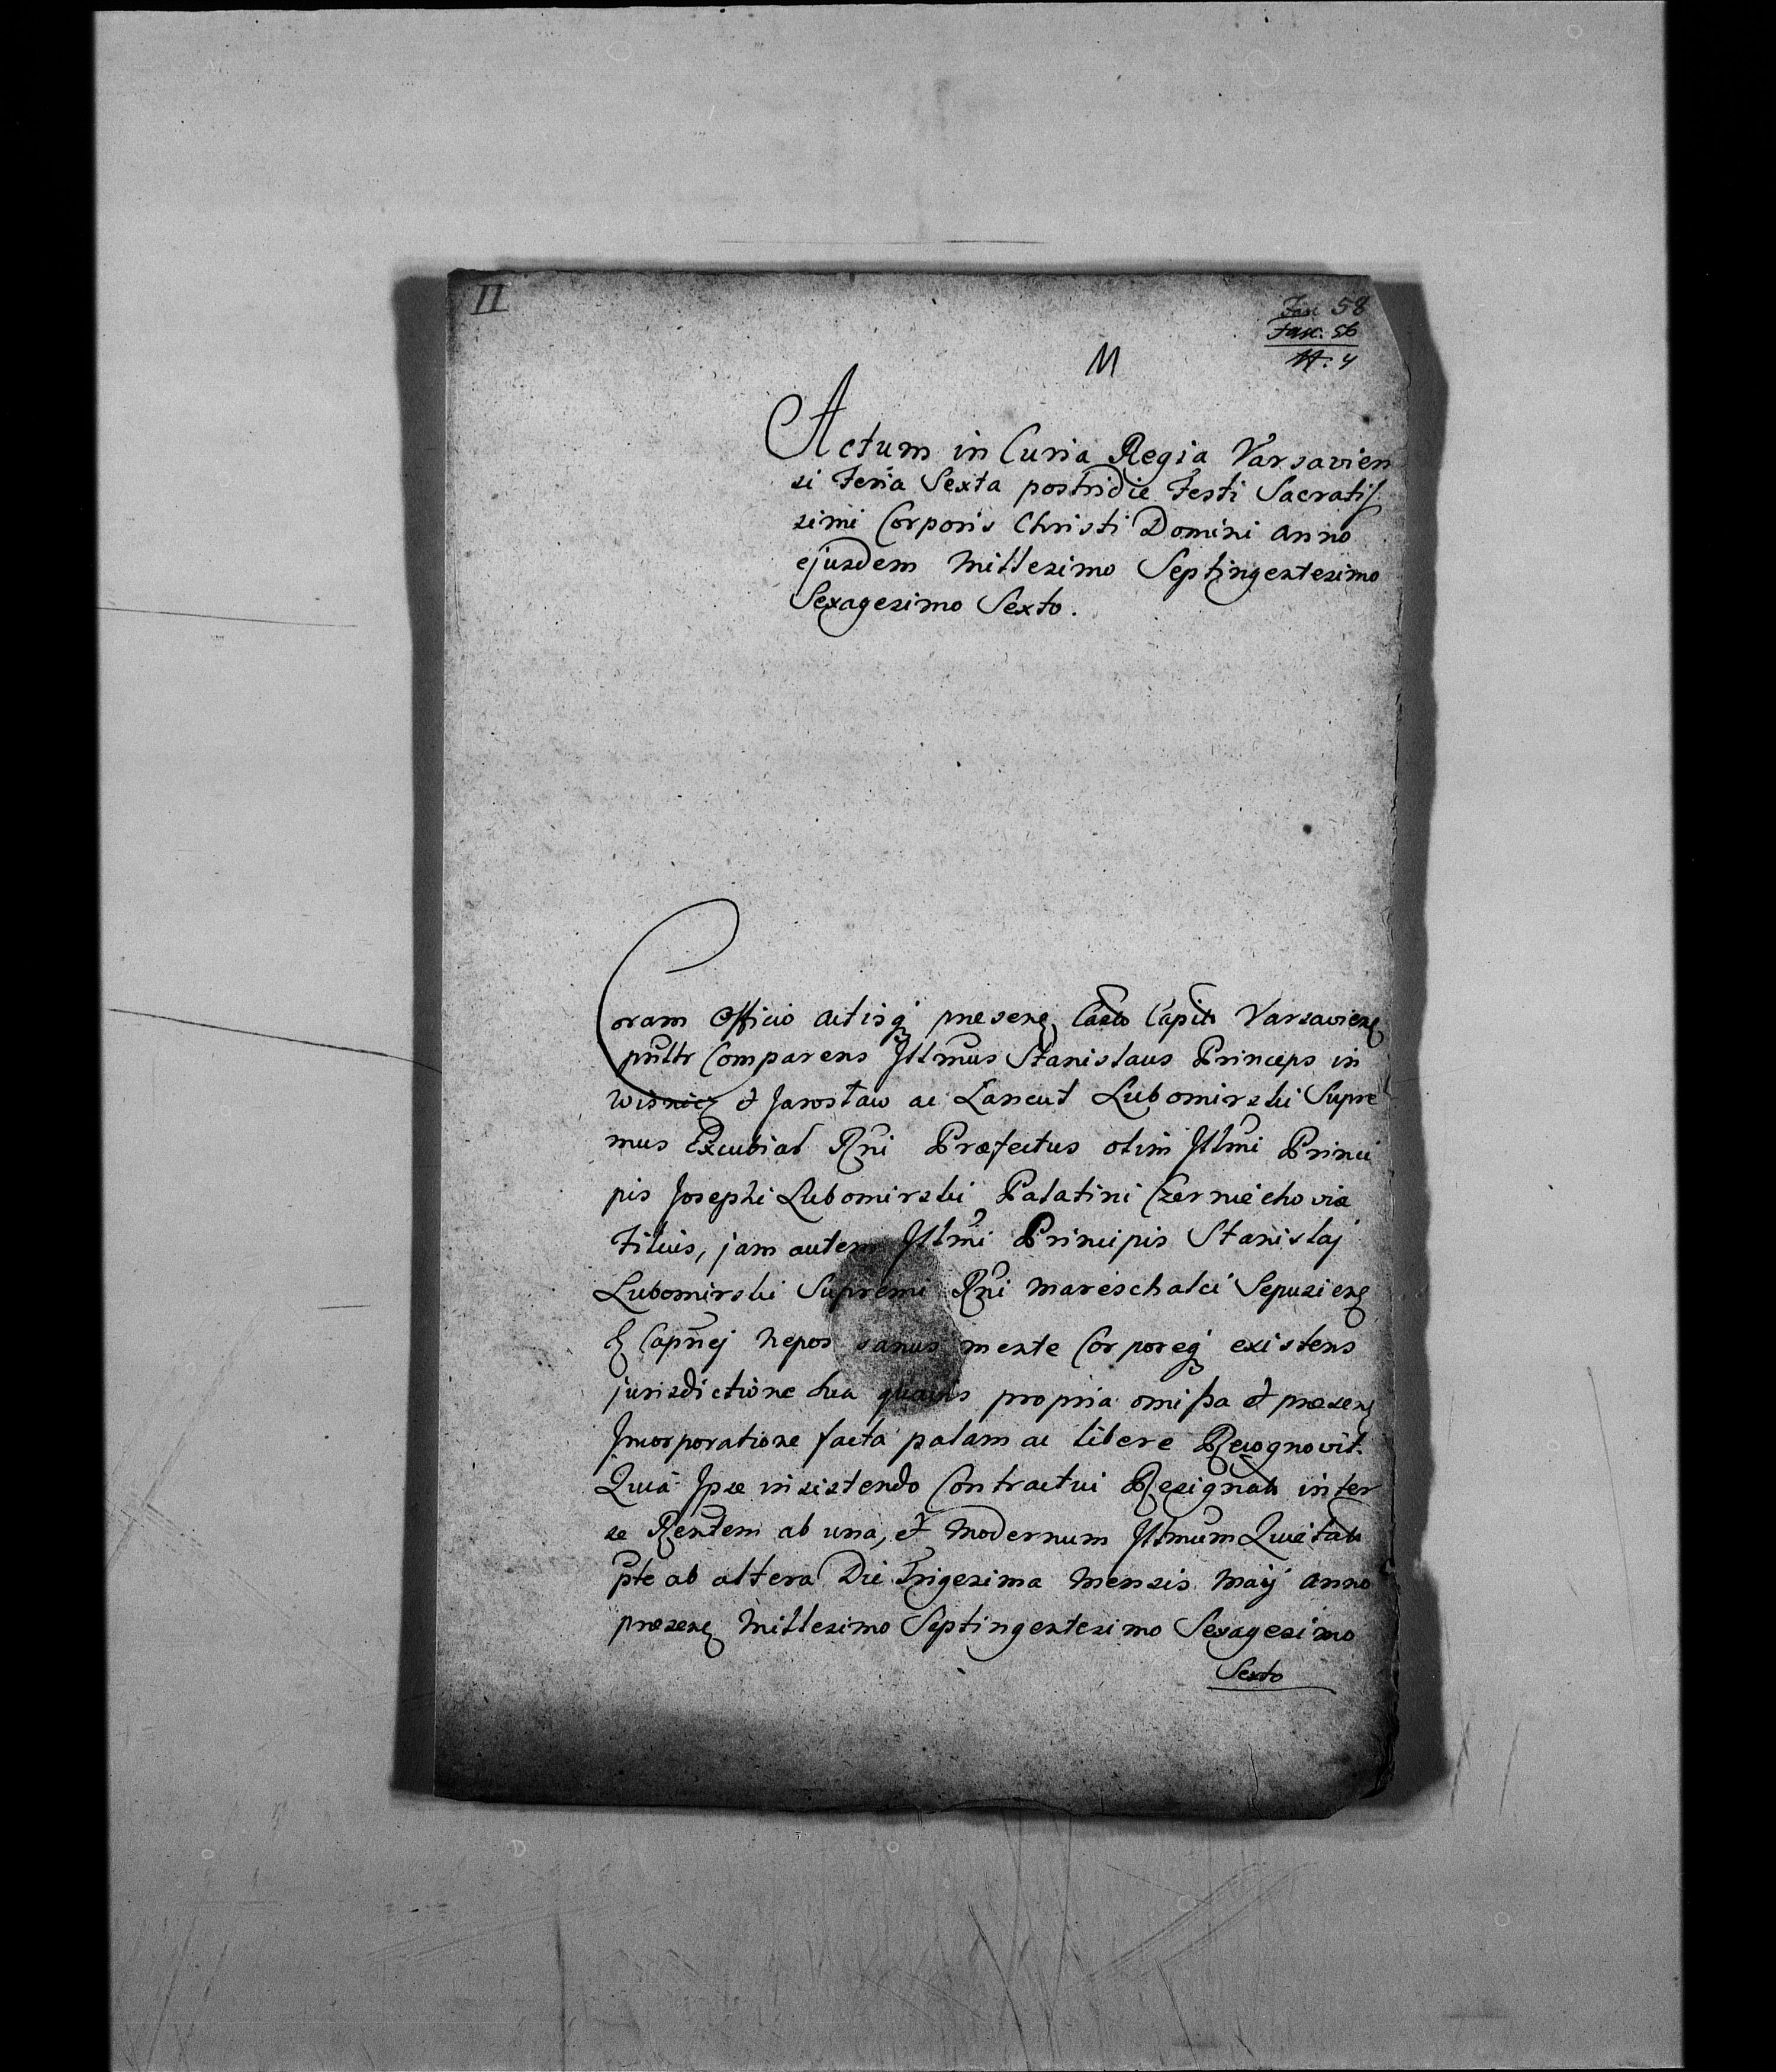 II
Fasc 58
Fasc. 56
N: 4
M
Actum in Curia Regia Varsavien
si Feria Sexta postridie Festi Sacratis
simi Corporis Christi Domini anno
ejusdem Millesimo Septingentesimo
Sexagesimo Sexto.
Coram Officio actisq presen Castr Capit Varsavien
pnltr Comparens Jllmus Stanislaus Princeps in
Wisnicz et Jarosław ac Łancut Lubomirski Supre
mus Excubiar Rni Præfectus olim Jllmi Princi
pis Josephi Lubomirski Palatini Czerniechoviæ
Filius, jam autem Jllmi Principis Stanislaj
Lubomirski Supremi Rni Mareschalci Sepusien
Capnej Nepos sanus mente Corporeq existens
jurisdictione sua quavis propria omissa et præsen
Jncorporatione facta palam ac libere Recognovit.
Quia Jpse insistendo Contractui Resignat inter
se Rentem ab una, et Modernum Jllmum Quietat
pte ab altera Die Trigesima Mensis Maij anno
præsen Millesimo Septingentesimo Sexagesimo
Sexto